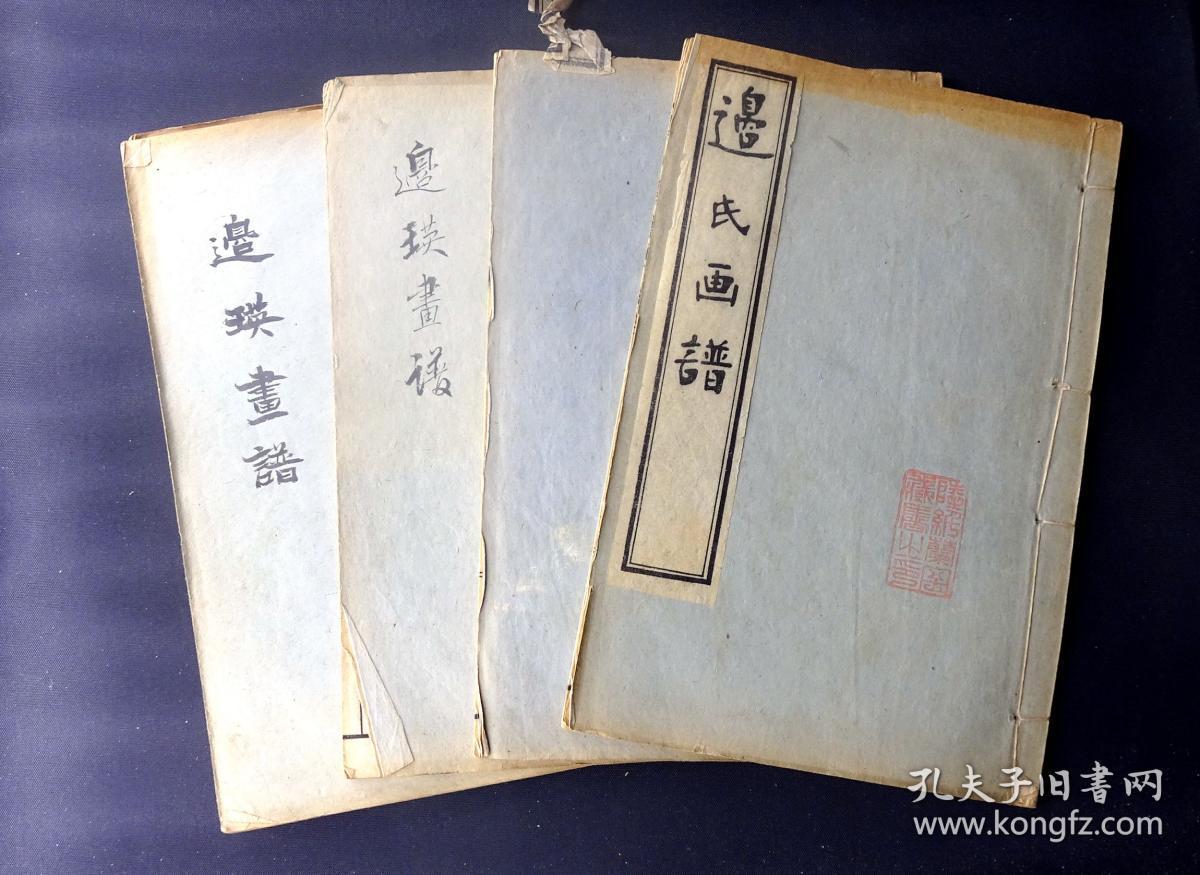 邊瑛畫譜
邊瑛畫譜
邊氏画譜
孔夫子旧书网
www.kongfz.com